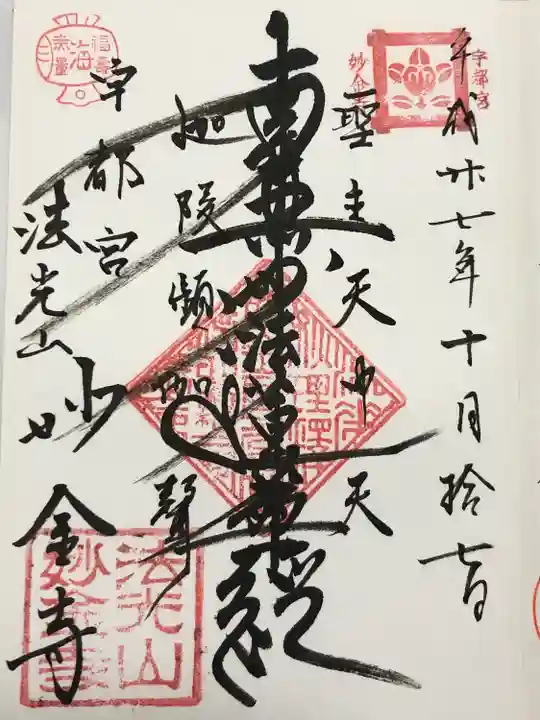 平成廿七年十月拾七日
宇都宮
妙金寺
聖主天中天
南無妙法蓮華経
迦陵頻伽聲
福壽海無量
宇都宮
法光山
妙金寺
法光山
妙金寺